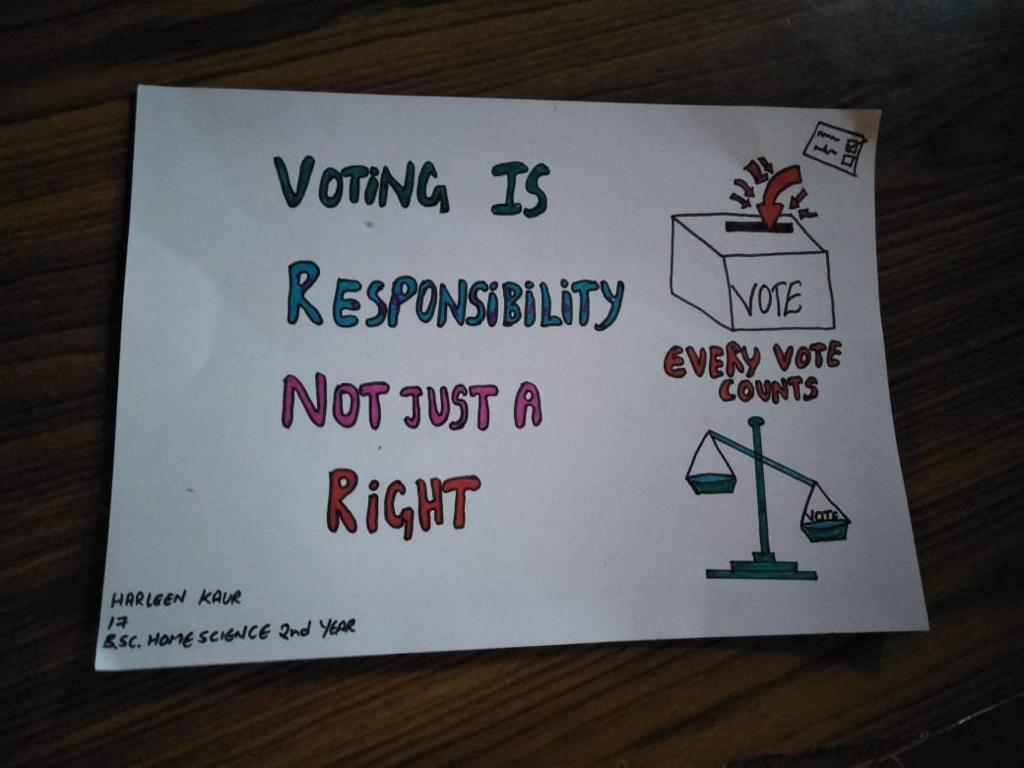 VOTING IS
RESPONSIBILITY
NOT JUST A
RIGHT
VOTE
EVERY VOTE
COUNTS
VOTE
HARLEEN KAUR
17
B.SC. HOME SCIENCE 2nd YEAR